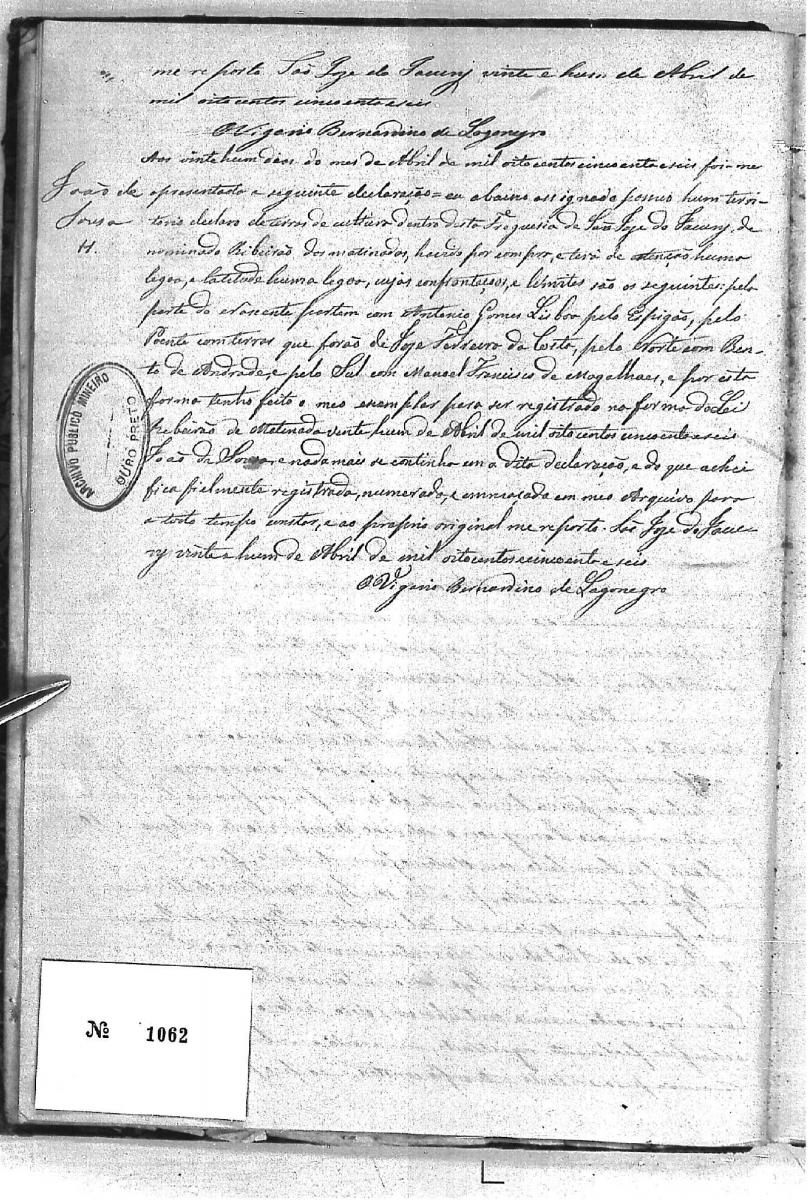 me reporto São Joze do Jacury vinte e hum de Abril de
mil oito centos cincoenta e seis
O Vigario Bernardino de Lagonegro
Aos vinte hum dias do mes de Abril de mil oito centos cincoenta e seis foi-me
João de
Sousa
apresentada a seguinte declaração = eu abaixo assignado possuo hum terri-
torio declaro de terras de cultura dentro desta Freguesia de São Joze do Jacury, de
nominado Ribeirão dos matinados, havido por compra, e terá de extenção huma
legoa, e latitude huma legoa, cujas confrontaçoes, e limites são os seguintes: pela
parte do Nascente partem com Antonio Gomes Lisboa pelo Espigão, pelo
Poente com terras que forão de Joze Ferreira da Costa, pelo Norte com Ben-
to de Andrade, e pelo Sul com Manoel Francisco de Magalhaes, e por esta
forma tenho feito o meo exemplar para ser registrado na forma da Lei
Ribeirão de Matinada vinte hum de Abril de mil oito centos cincoenta e seis
João de Sousa, e nada mais se continha em a dita declaração, e do que achei
fica fielmente registrada, numerada, e emmassada em meo Arquivo para
a todo tempo constar, e ao proprio original me reporto. São Joze do Jacu-
ry vinte e hum de Abril de mil oito centos e cincoenta e seis
O Vigario Bernardino de Lagonegro
ARCHIVO PUBLICO MINEIRO
OURO PRETO
№ 1062